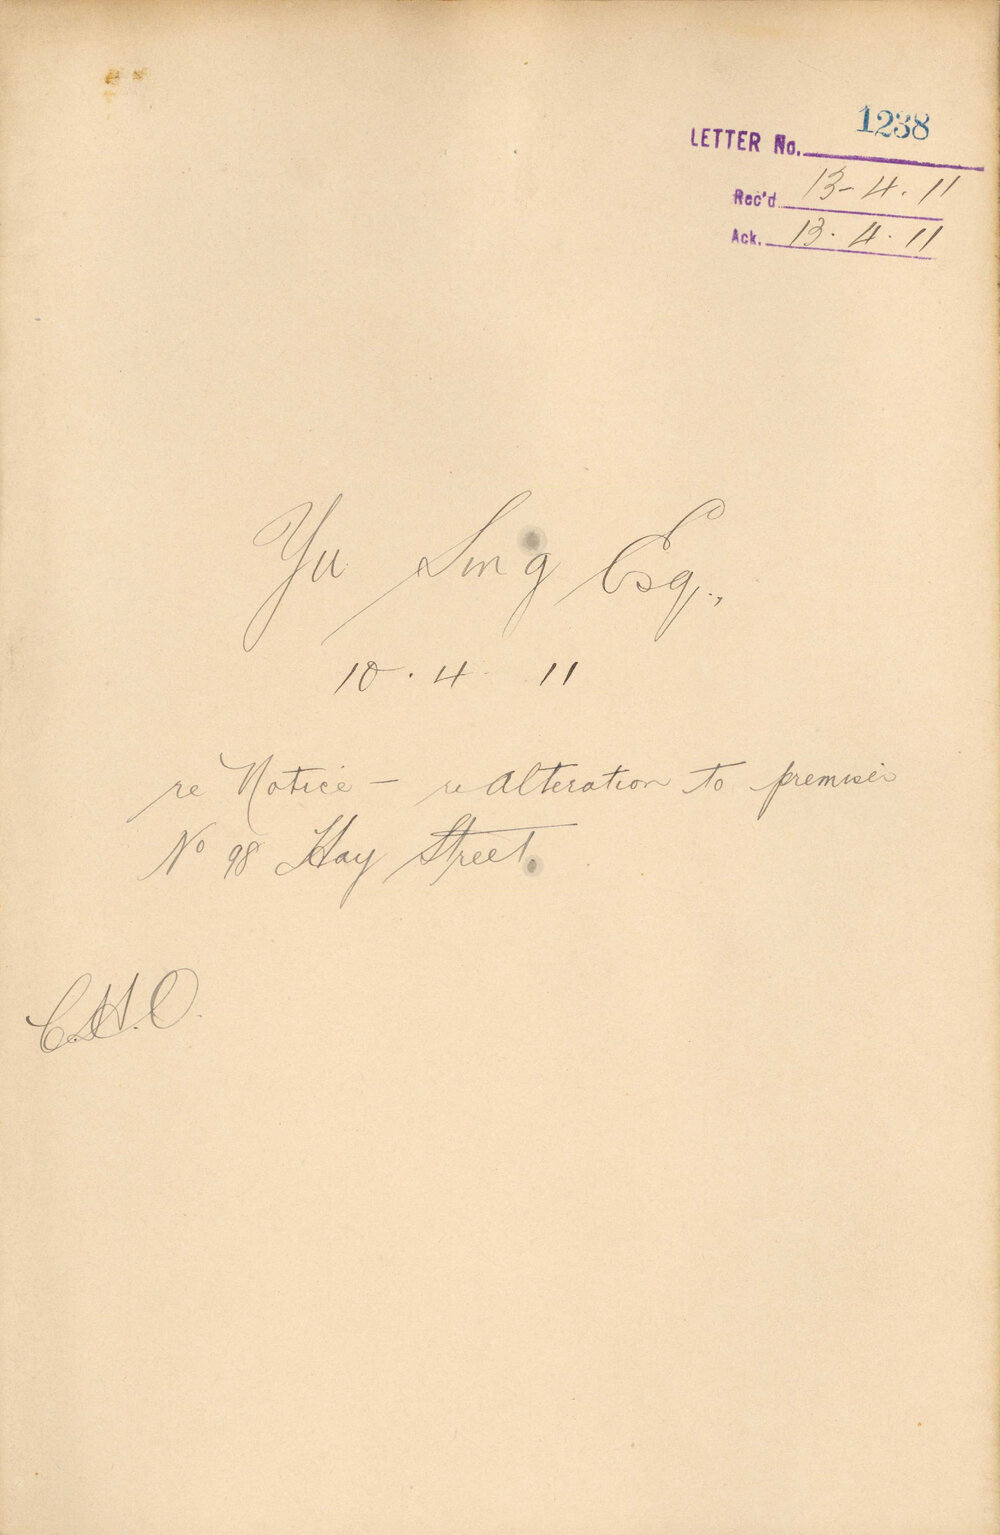 LETTER No. 1238
Rec'd 13-4.11
Ack. 13.4.11
Yu Sing Esq.,
10.4.11
re Notice - re Alteration to premises
No 98 Hay Street.
C.H.O.